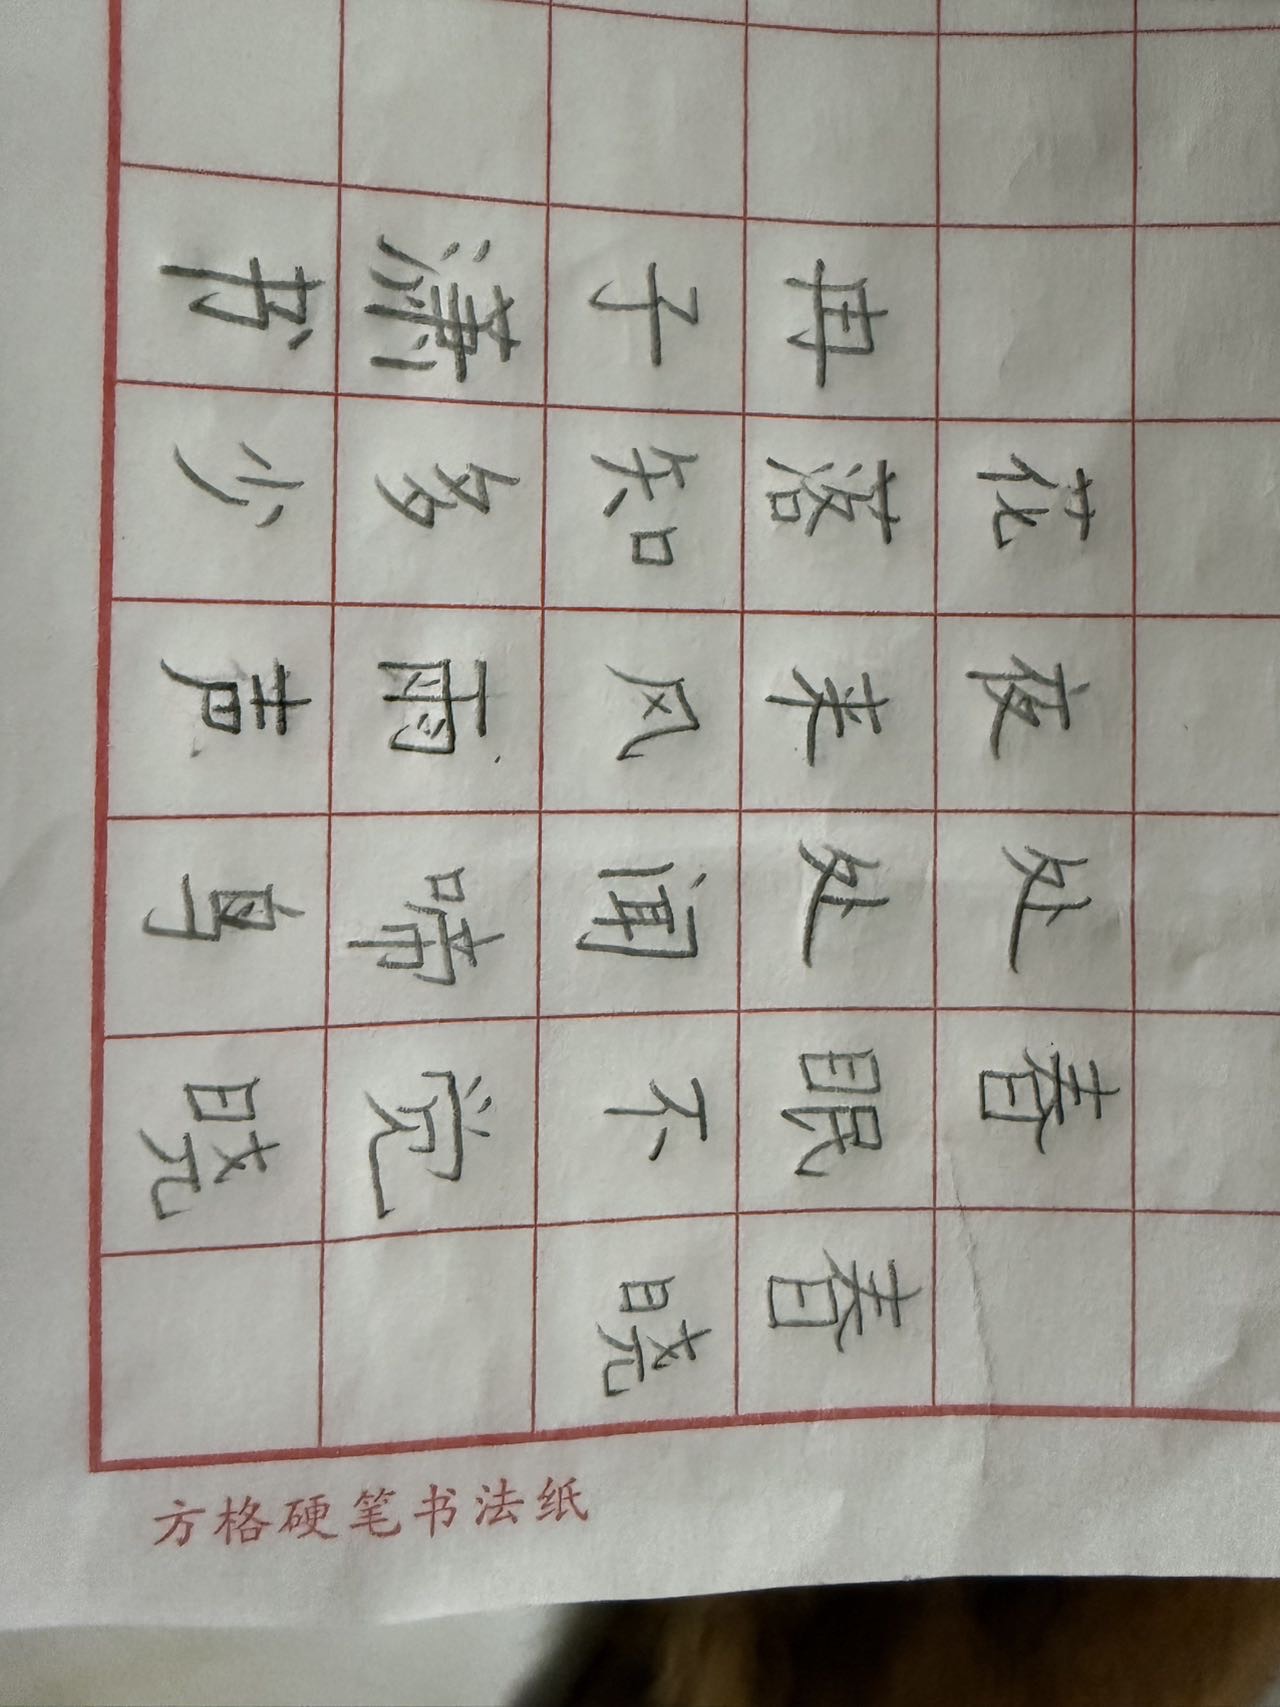 春晓
春眠不觉晓
处处闻啼鸟
夜来风雨声
花落知多少
冉子潇书
方格硬笔书法纸